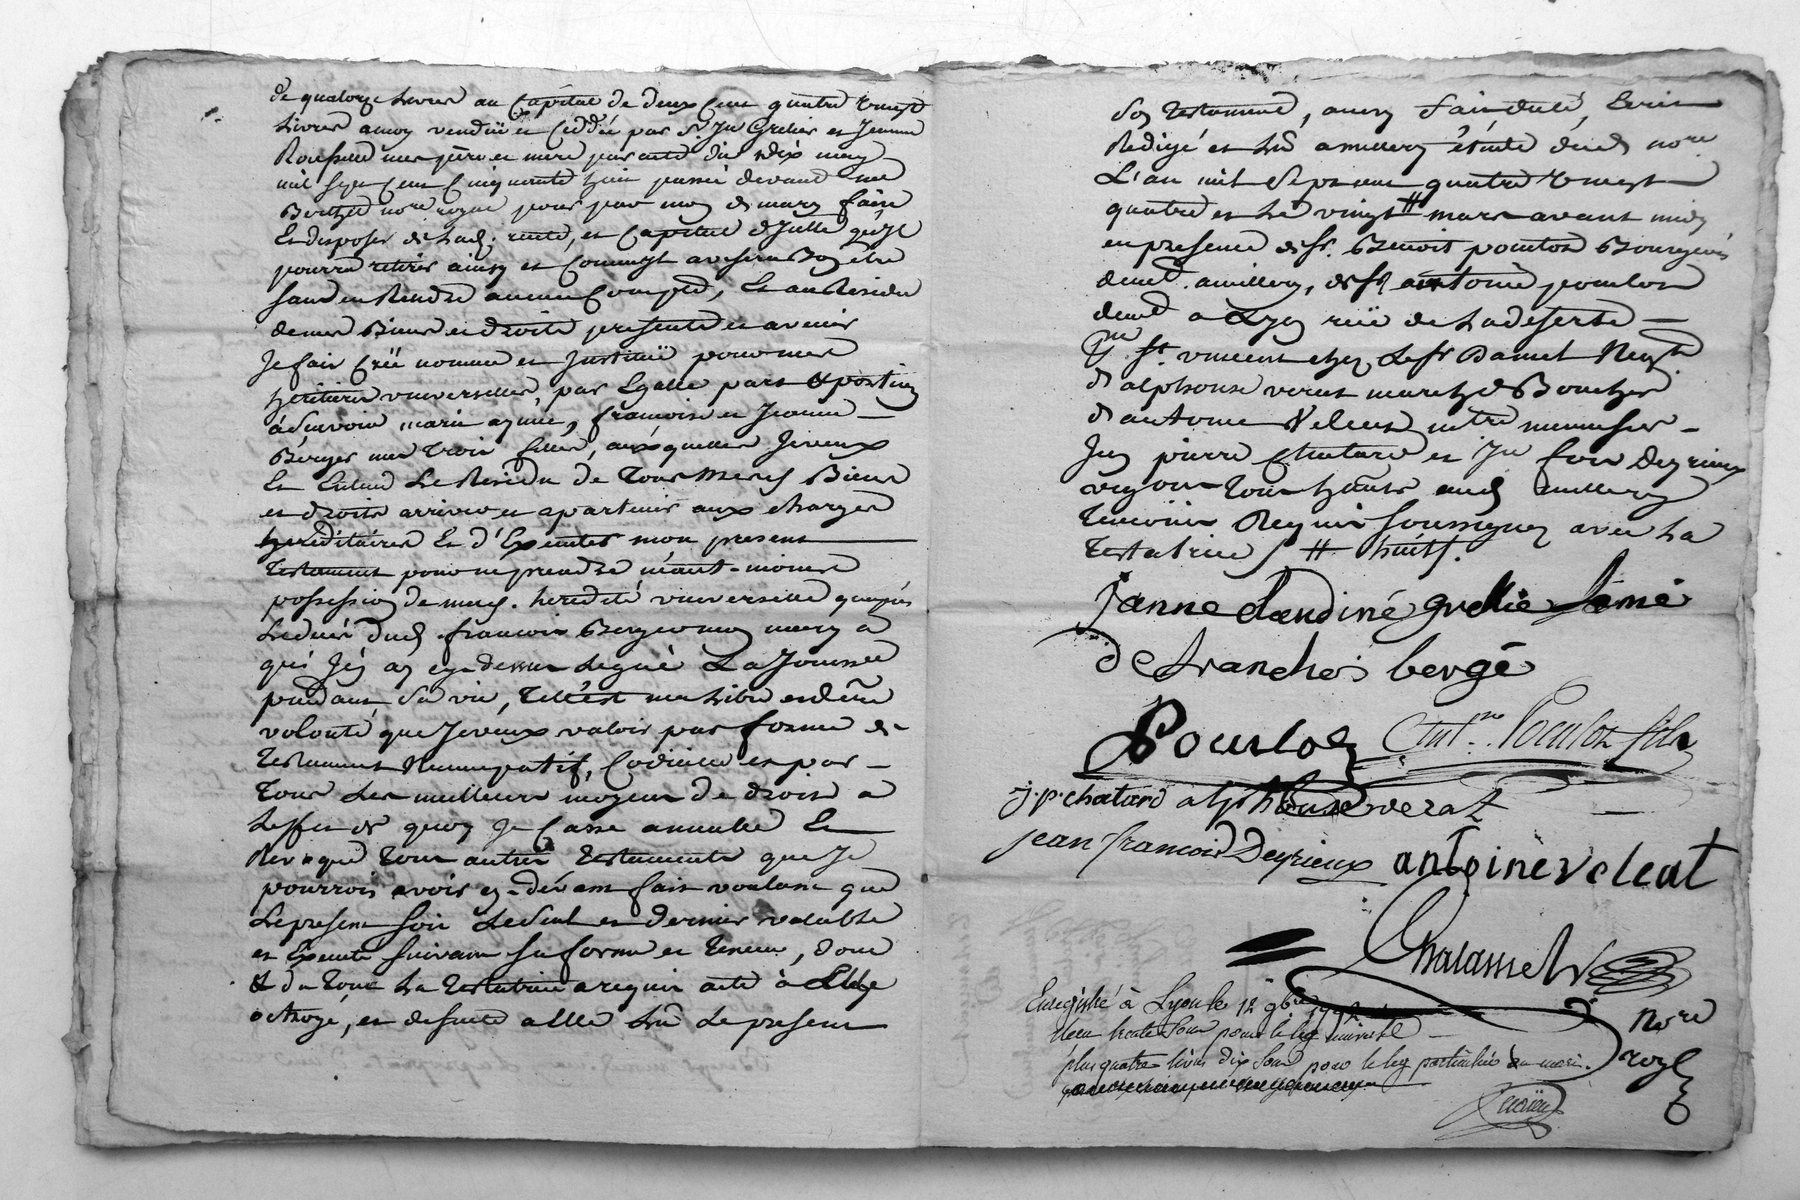 de quatorze Livres au Capital de deux Cent quatre vingt
Livres a moy vendüe et Ceddée par Sr. Jn Grelier et Jeanne
Rousset mes père et mere par acte du dix may
mil sept Cent Cinquante huit passé devant me
nore. royal pour par moy d. mary faire
Et disposer de Lad. rente, et Capital d'Jcelle qu'Jl
pourra retirer ainsy et Comme Jl avisera Bon être
sans en Rendre aucun Compte, Et au Résidu
de mes Biens et droits presents et avenir
Je fais Créé nomme et Jnstituë pour mes
héritieres universelles, par Egalle part & portion
à Sçavoir marie aymée, francoise et Jeanne
Berger mes trois filles, auxquelles Je veux
Et Entend Le Residu de Tous Mesd. Biens
et droits arriver et apartenir aux charges
héréditaires Et d'Executer mon present
Testament pour ne prendre néant-moins
possession de mesd. heredité universelle qu'après
Le decès dud. francois Berger mon mary a
qui J'en ay cy-dessus Legué La Jouissance
pendant Sa vie, Tell'est ma Libre et dre.
volonté que Je veux valoir par forme de
Testament Nuncupatif, Codicile et par
Tous Les meilleurs moyens de droit a
L'effet de quoy Je Casse annulle Et
Revoque Tous autres Testaments que Je
pourrois avoir cy-devant fait voulant que
Le present Soit Le Seul et dernier valable
et Execute Suivant Sa forme et Teneur, dont
& du Tout La Testatrice a requis acte à Elle
octroyé, et de Suite a Elle Lu Le present
Son Testament, ainsy fait, dicté, Ecrit
Rédigé et Lû a millery étude dud. nore
L'an mil Sept cent quatre vingt
quatre et Le vingt # mars avant midy
en presence de Sr. Benoit pourlon Bourgeois
demt. a millery, de Sr antoine pourlon
demt a Lyon ruë de La deserte
St. vincent chez Le Sr Daniel Negt
d'alphonse verat marchd Boucher
d'antoine Veleat mtre menuisier
Jn pierre Chatard et Jn fcois Deyrieux
vignerons Tous habts. aud. millery
Temoins Requis Soussignez avec La
Testatrice / # huit /.
janne claudine grellie famé
de franchois bergé
Pourlon Antne. Pourlon fils
j. p. chatard alphonse verat
jean francois Deyrieux antoine veleat
Chalasset
Nore
royl
Enregistré à Lyon le 12 9bre
pour le leg universel
plus quatre livres dix sous pour le leg particulier au mari.